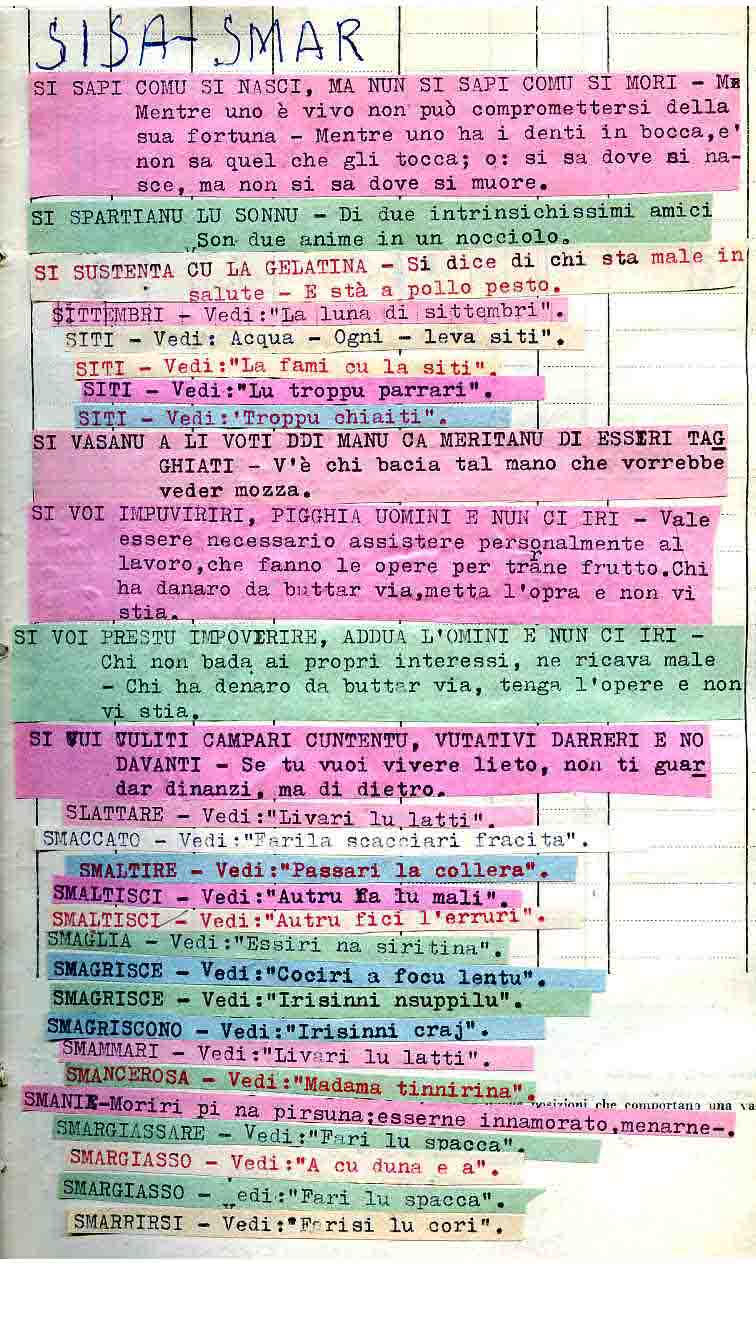 SISA-SMAR
SI SAPI COMU SI NASCI, MA NUN SI SAPI COMU SI MORI - Me
Mentre uno è vivo non può compromettersi della
sua fortuna - Mentre uno ha i denti in bocca,e'
non sa quel che gli tocca; o: si sa dove si na-
sce, ma non si sa dove si muore.
SI SPARTIANU LU SONNU - Di due intrinsichissimi amici
Son due anime in un nocciolo.
SI SUSTENTA CU LA GELATINA - Si dice di chi sta male in
salute - E stà a pollo pesto.
SITTEMBRI - Vedi:"La luna di sittembri".
SITI - Vedi: Acqua - Ogni - leva siti".
SITI - Vedi:"La fami cu la siti".
SITI - Vedi:"Lu troppu parrari".
SITI - Vedi:'Troppu chiaiti".
SI VASANU A LI VOTI DDI MANU CA MERITANU DI ESSIRI TAG
GHIATI - V'è chi bacia tal mano che vorrebbe
veder mozza.
SI VOI IMPUVIRIRI, PIGGHIA UOMINI E NUN CI IRI - Vale
essere necessario assistere personalmente al
lavoro,che fanno le opere per trarne frutto.Chi
ha danaro da buttar via,metta l'opra e non vi
stia.
SI VOI PRESTU IMPOVERIRE, ADDUA L'OMINI E NUN CI IRI -
Chi non bada ai propri interessi, ne ricava male
- Chi ha denaro da buttar via, tenga l'opere e non
vi stia.
SI VUI VULITI CAMPARI CUNTENTU, VUTATIVI DARRERI E NO
DAVANTI - Se tu vuoi vivere lieto, non ti guar
dar dinanzi, ma di dietro.
SLATTARE - Vedi:"Livari lu latti".
SMACCATO - Vedi:"Farila scacciari fracita".
SMALTIRE - Vedi:"Passari la collera".
SMALTISCI - Vedi:"Autru fa lu mali".
SMALTISCI - Vedi:"Autru fici l'erruri".
SMAGLIA - Vedi:"Essiri na siritina".
SMAGRISCE - Vedi:"Cociri a focu lentu".
SMAGRISCE - Vedi:"Irisinni nsuppilu".
SMAGRISCONO - Vedi:"Irisinni craj".
SMAMMARI - Vedi:"Livari lu latti".
SMANCEROSA - Vedi:"Madama tinnirina".
posizioni che comportano una va
SMANIE-Moriri pi na pirsuna;esserne innamorato,menarne-.
SMARGIASSARE - Vedi:"Fari lu spacca".
SMARGIASSO - Vedi:"A cu duna e a".
SMARGIASSO - Vedi:"Fari lu spacca".
SMARRIRSI - Vedi:"Farisi lu cori".